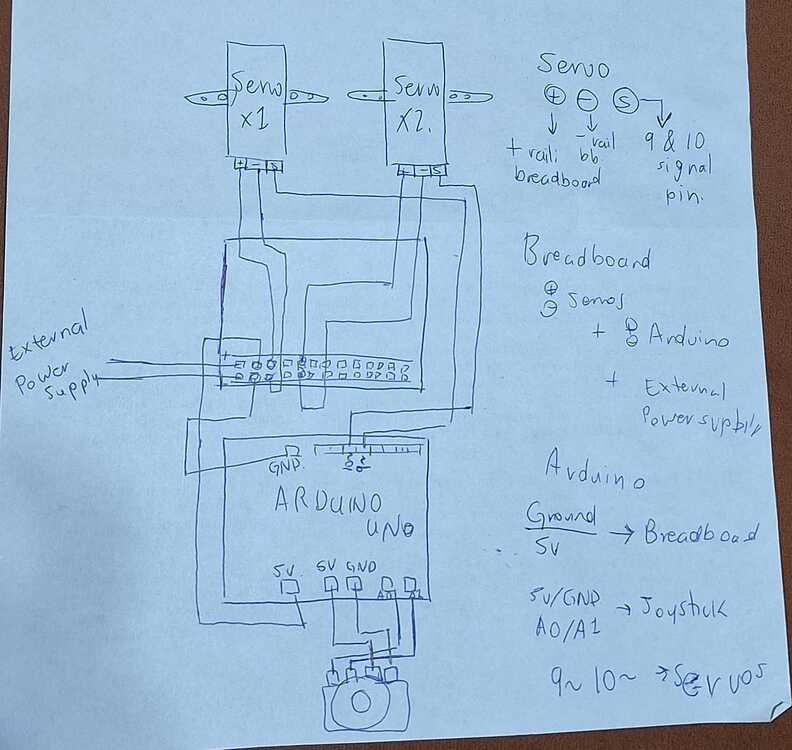 Servo
x1
Servo
X2.
+ - S
+ - S
External
Power
Supply
+
-
GND
10
9
ARDUINO
UNO
5V
5V GND
A0 A1
Servo
+ - S
+ rail: - rail 9 & 10
breadboard bb signal
pin.
Breadboard
+
- Servos
+ + - Arduino
+ External
Power supply
Arduino
Ground
5V → Breadboard
5V/GND → Joystick
A0/A1
9~ 10~ → Servos